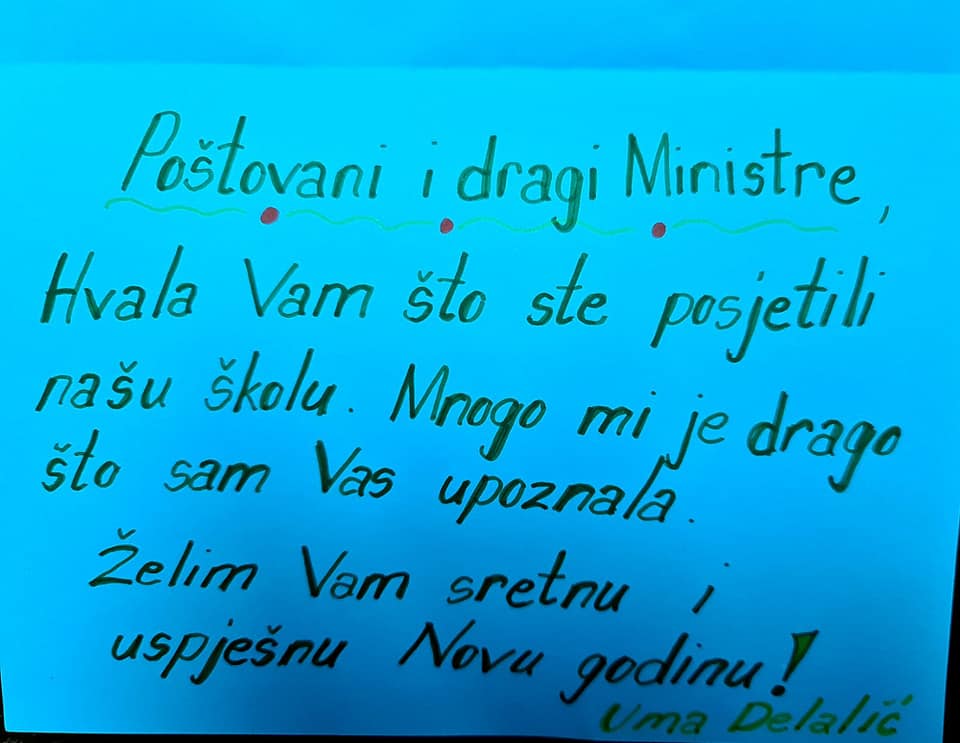 Poštovani i dragi Ministre,
Hvala Vam što ste posjetili
našu školu. Mnogo mi je drago
što sam Vas upoznala.
Želim Vam sretnu i
uspješnu Novu godinu!
Uma Delalić